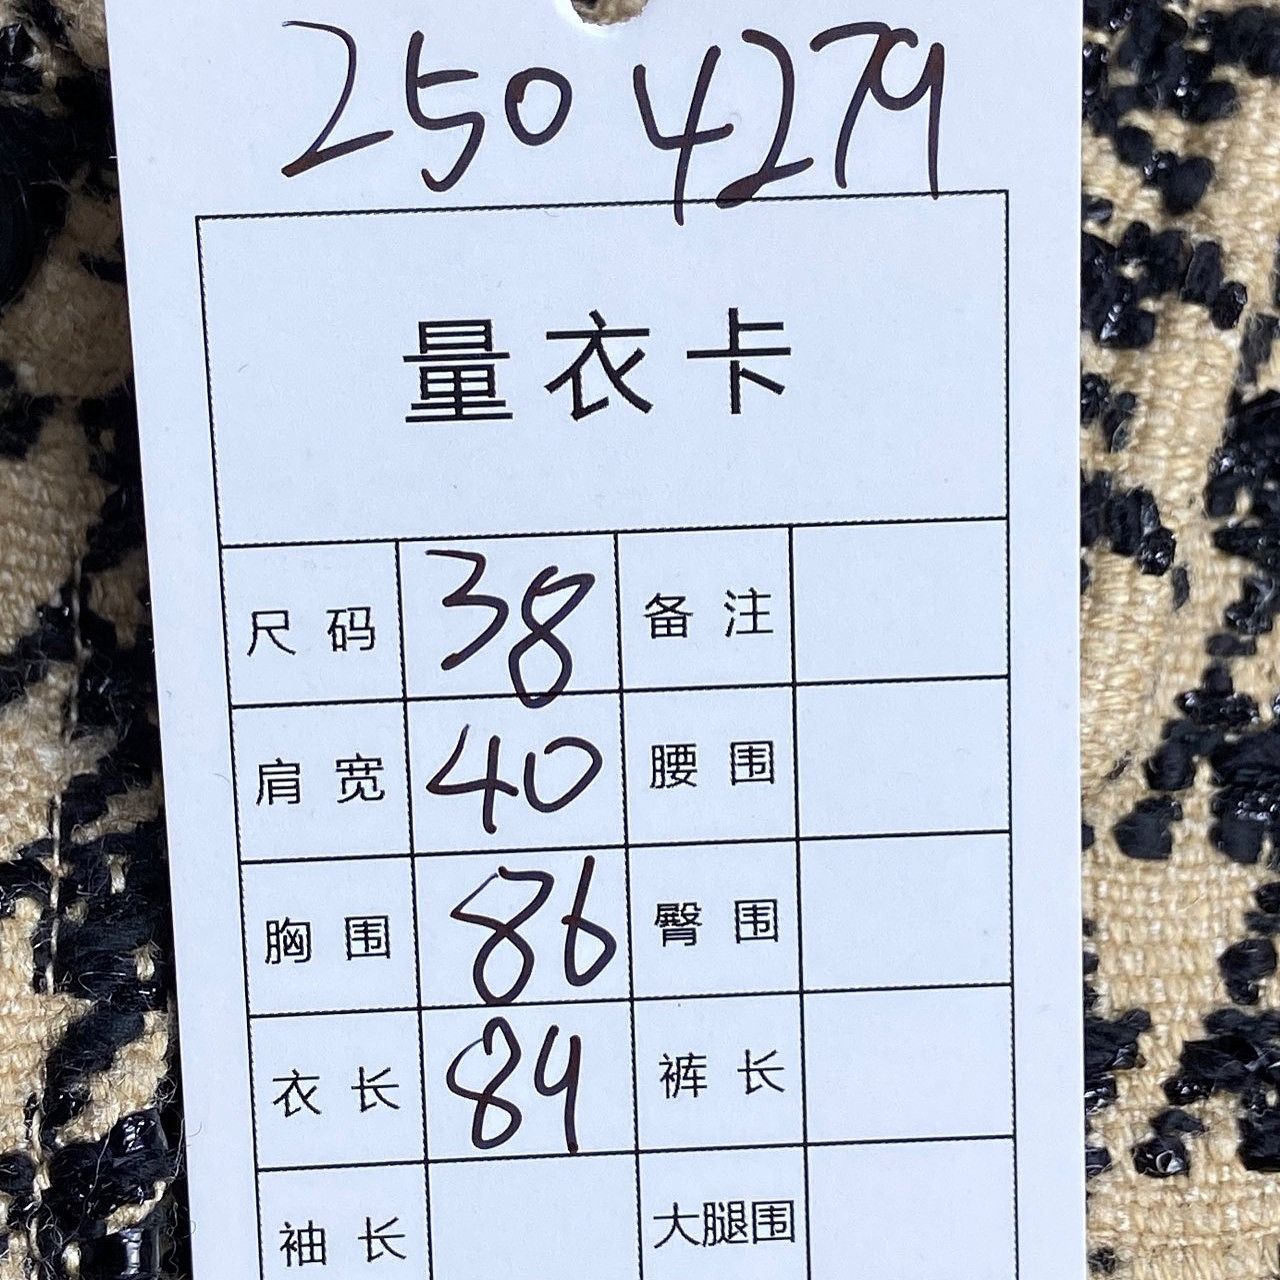 250 4279
量衣卡
尺码 38 备注
肩宽 40 腰围
胸围 86 臀围
衣长 84 裤长
袖长 大腿围